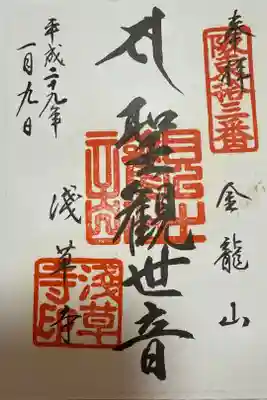 奉拝
坂東十三番
金龍山
聖觀世音
淺草寺
淺草寺印
平成二十九年
一月九日